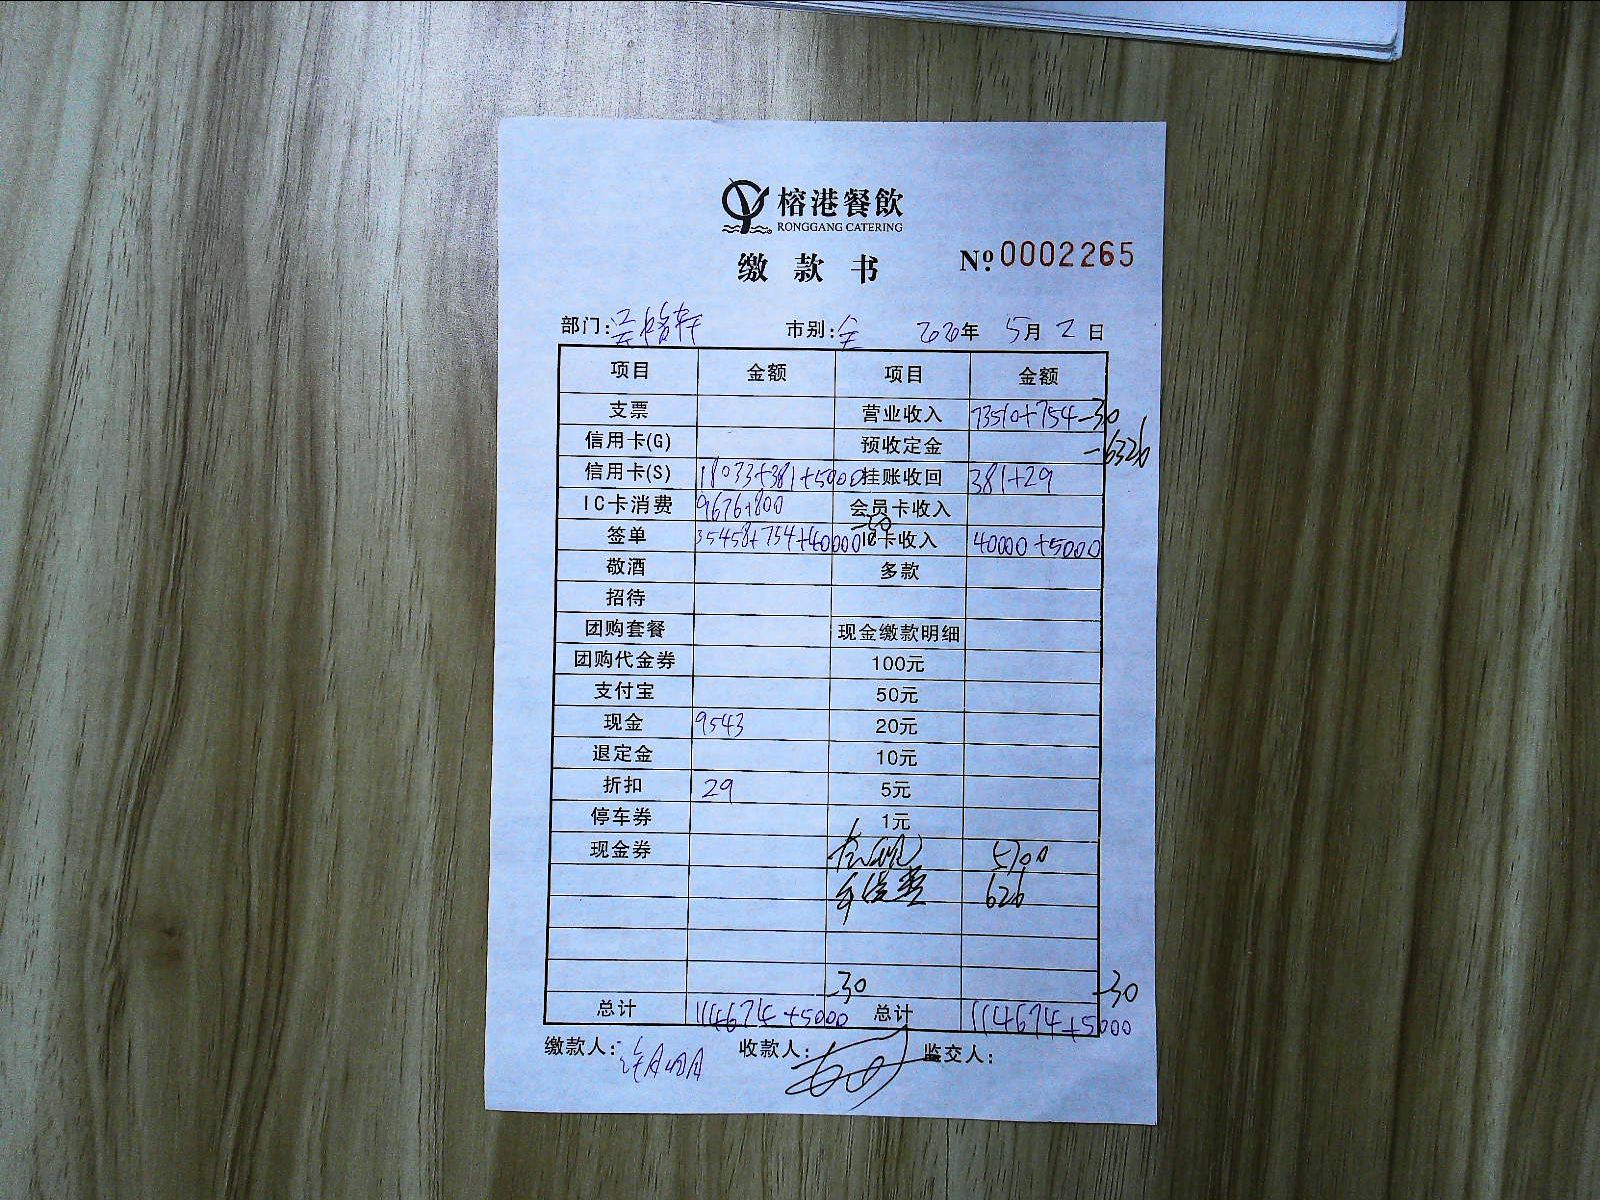 榕港餐飲
RONGGANG CATERING
缴款书 Nº 0002265
部门: 市别:全 2020年 5月 2日
项目 金额 项目 金额
支票 营业收入 73510+754-30
信用卡(G) 预收定金 -6326
信用卡(S) 18033+381+5000 挂账收回 381+29
IC卡消费 9676+800 会员卡收入
签单 35458+754+40000-30 IC卡收入 40000+5000
敬酒 多款
招待
团购套餐 现金缴款明细
团购代金券 100元
支付宝 50元
现金 9543 20元
退定金 10元
折扣 29 5元
停车券 1元
现金券 5700
626
-30 -30
总计 114674+5000 总计 114674+5000
缴款人: 收款人: 监交人: